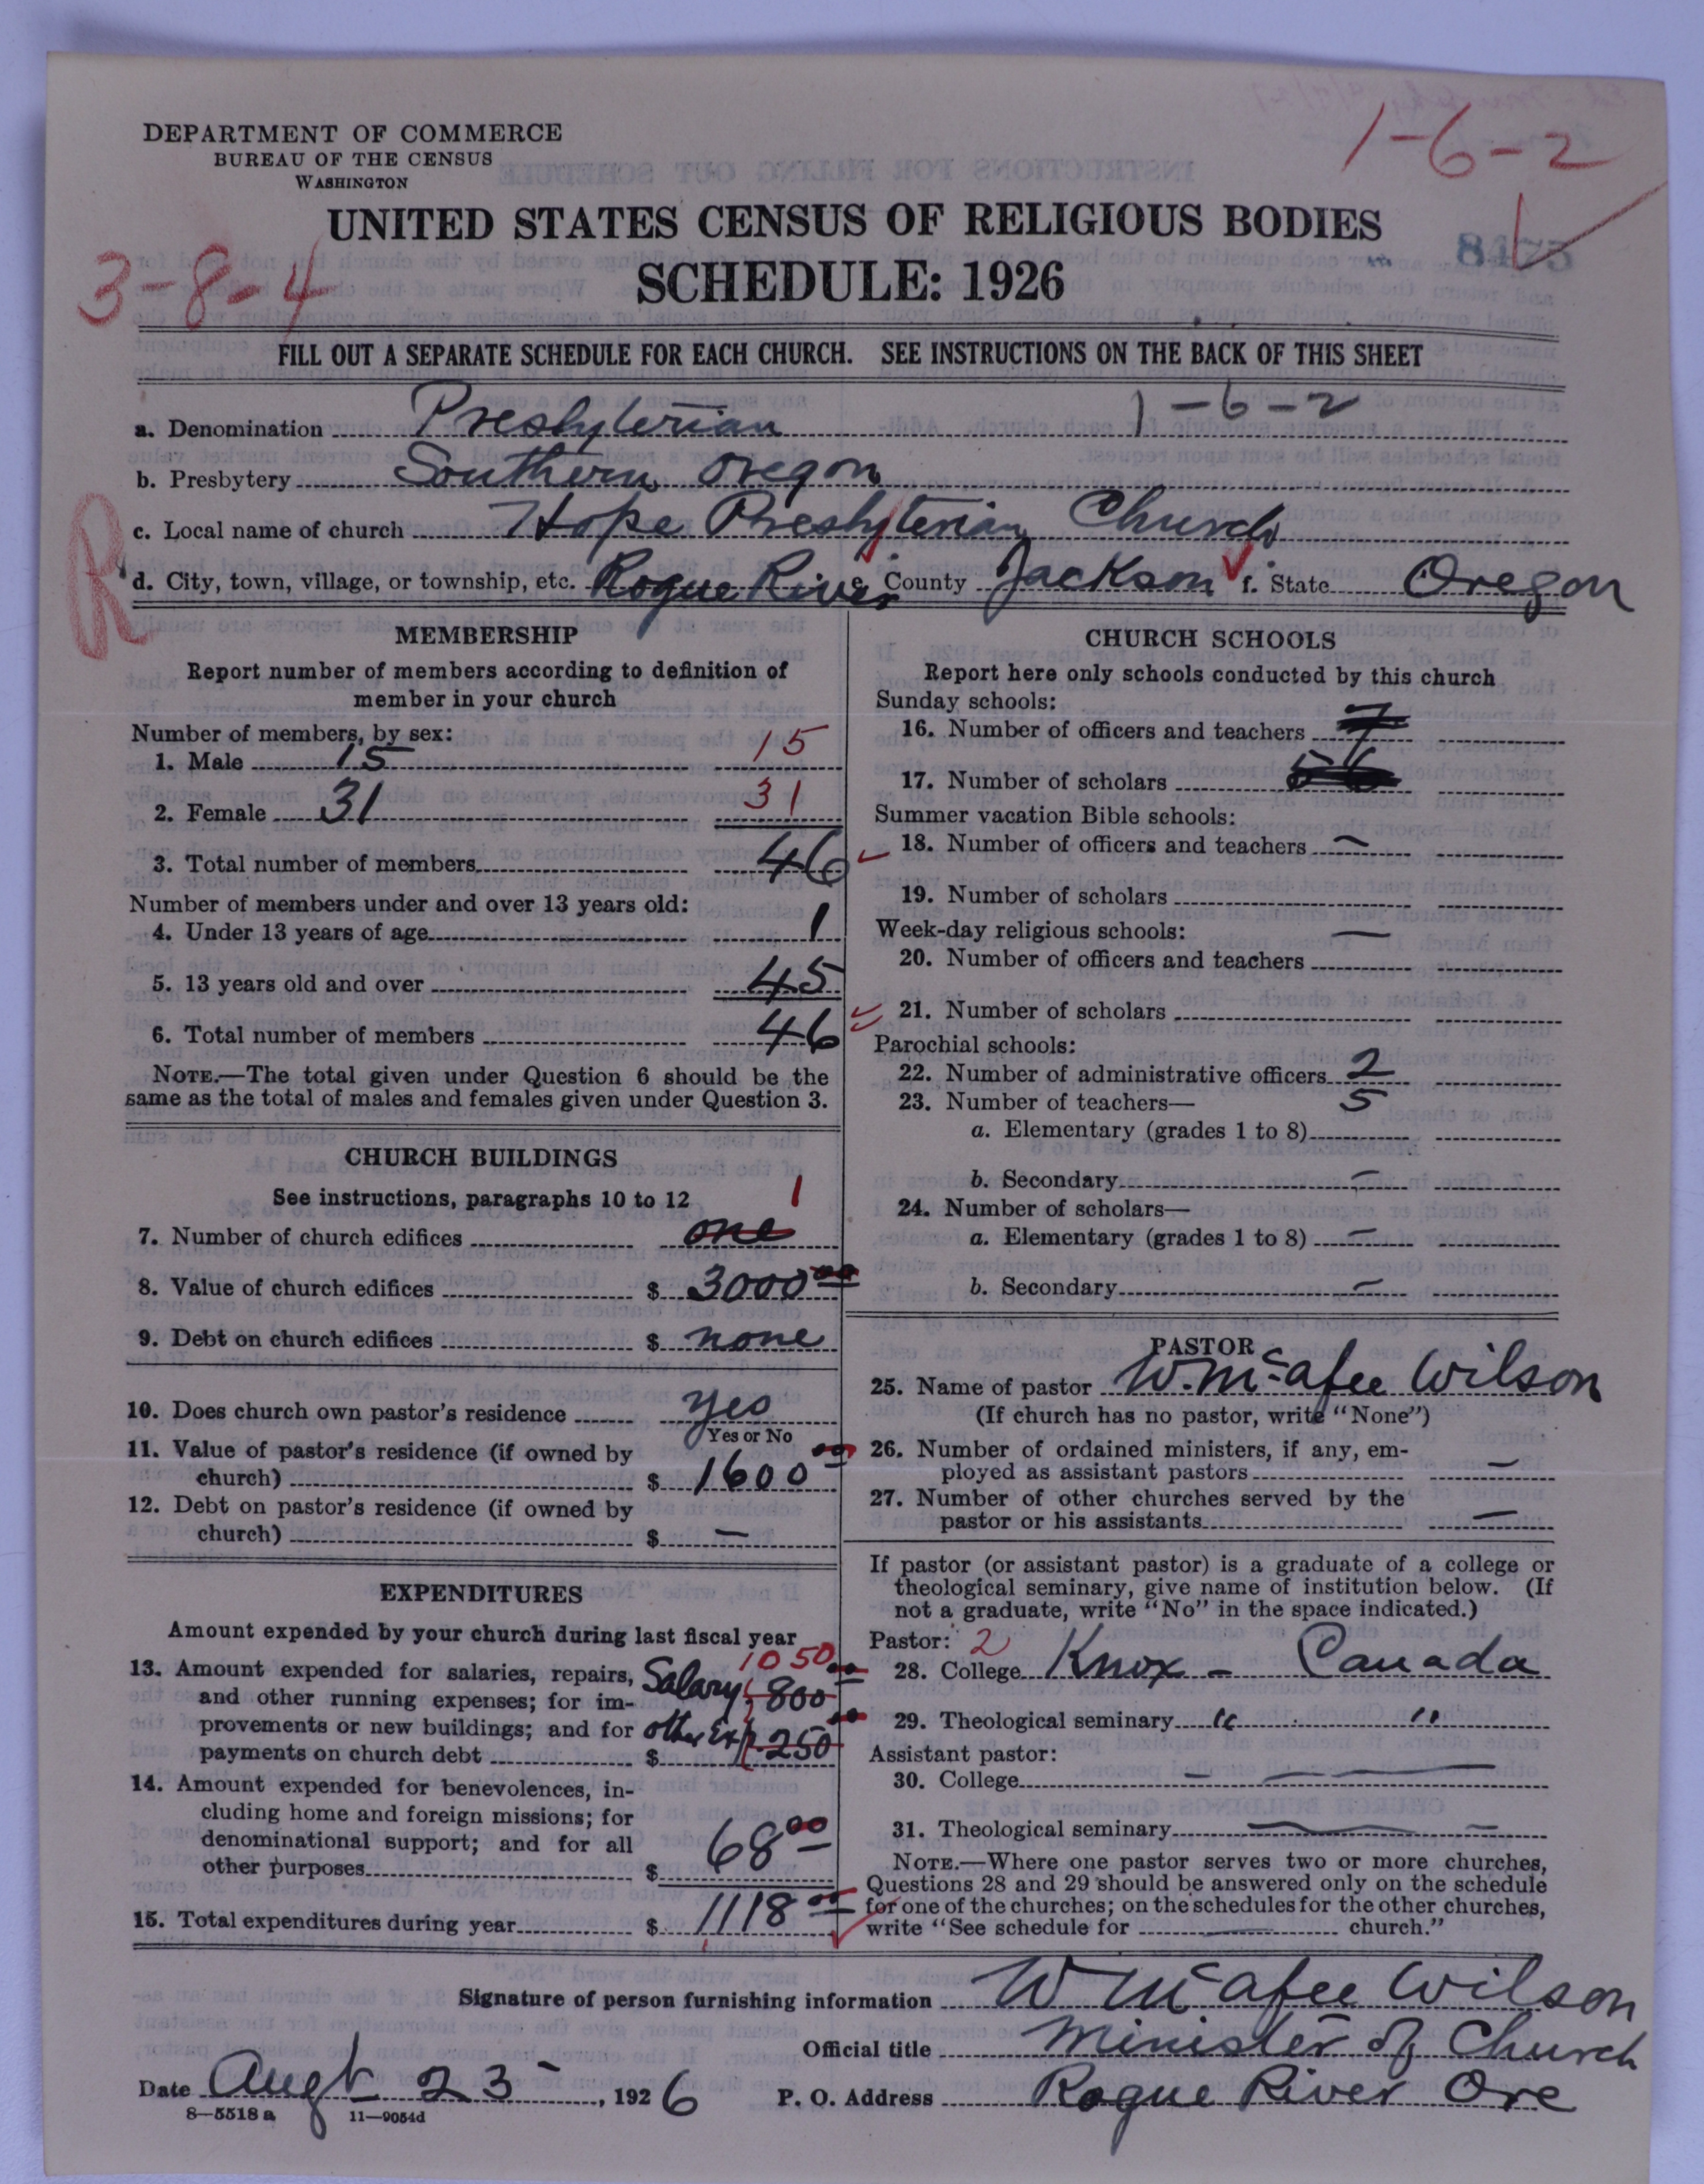 1-6-2
DEPARTMENT OF COMMERCE
BUREAU OF THE CENSUS
WASHINGTON
UNITED STATES CENSUS OF RELIGIOUS BODIES
8475
3-8-4
SCHEDULE: 1926
FILL OUT A SEPARATE SCHEDULE FOR EACH CHURCH. SEE INSTRUCTIONS ON THE BACK OF THIS SHEET
a. Denomination Presbyterian 1-6-2
b. Presbytery Southern Oregon
R
c. Local name of church Hope Presbyterian Church
d. City, town, village, or township, etc. Rogue River e. County Jackson f. State Oregon
MEMBERSHIP
Report number of members according to definition of
member in your church
Number of members, by sex:
1. Male 15 15
2. Female 31 31
3. Total number of members 46
Number of members under and over 13 years old:
4. Under 13 years of age 1
5. 13 years old and over 45
6. Total number of members 46
NOTE.—The total given under Question 6 should be the
same as the total of males and females given under Question 3.
CHURCH BUILDINGS
See instructions, paragraphs 10 to 12 1
7. Number of church edifices one
8. Value of church edifices $ 3000 00
9. Debt on church edifices $ none
10. Does church own pastor's residence yes
Yes or No
11. Value of pastor's residence (if owned by
church) $ 1600 00
12. Debt on pastor's residence (if owned by
church) $ —
EXPENDITURES
Amount expended by your church during last fiscal year
1050
13. Amount expended for salaries, repairs, Salary, 800 00
and other running expenses; for im-
provements or new buildings; and for other Exp. 250 00
payments on church debt $
14. Amount expended for benevolences, in-
cluding home and foreign missions; for
denominational support; and for all
other purposes $ 68 00
15. Total expenditures during year $ 1118 00
CHURCH SCHOOLS
Report here only schools conducted by this church
Sunday schools:
16. Number of officers and teachers 7
17. Number of scholars 56
Summer vacation Bible schools:
18. Number of officers and teachers —
19. Number of scholars
Week-day religious schools: —
20. Number of officers and teachers
21. Number of scholars
Parochial schools:
22. Number of administrative officers 2
23. Number of teachers— 5
a. Elementary (grades 1 to 8)
b. Secondary —
24. Number of scholars—
a. Elementary (grades 1 to 8) —
b. Secondary —
PASTOR
25. Name of pastor W. McAfee Wilson
(If church has no pastor, write "None")
26. Number of ordained ministers, if any, em-
ployed as assistant pastors —
27. Number of other churches served by the
pastor or his assistants —
If pastor (or assistant pastor) is a graduate of a college or
theological seminary, give name of institution below. (If
not a graduate, write "No" in the space indicated.)
Pastor: 2
28. College Knox - Canada
29. Theological seminary " "
Assistant pastor:
30. College —
31. Theological seminary —
NOTE.—Where one pastor serves two or more churches,
Questions 28 and 29 should be answered only on the schedule
for one of the churches; on the schedules for the other churches,
write "See schedule for — church."
Signature of person furnishing information W McAfee Wilson
Official title Minister of Church
Date Augt 23, 1926 P. O. Address Rogue River Ore
8—5518 a 11—9054d